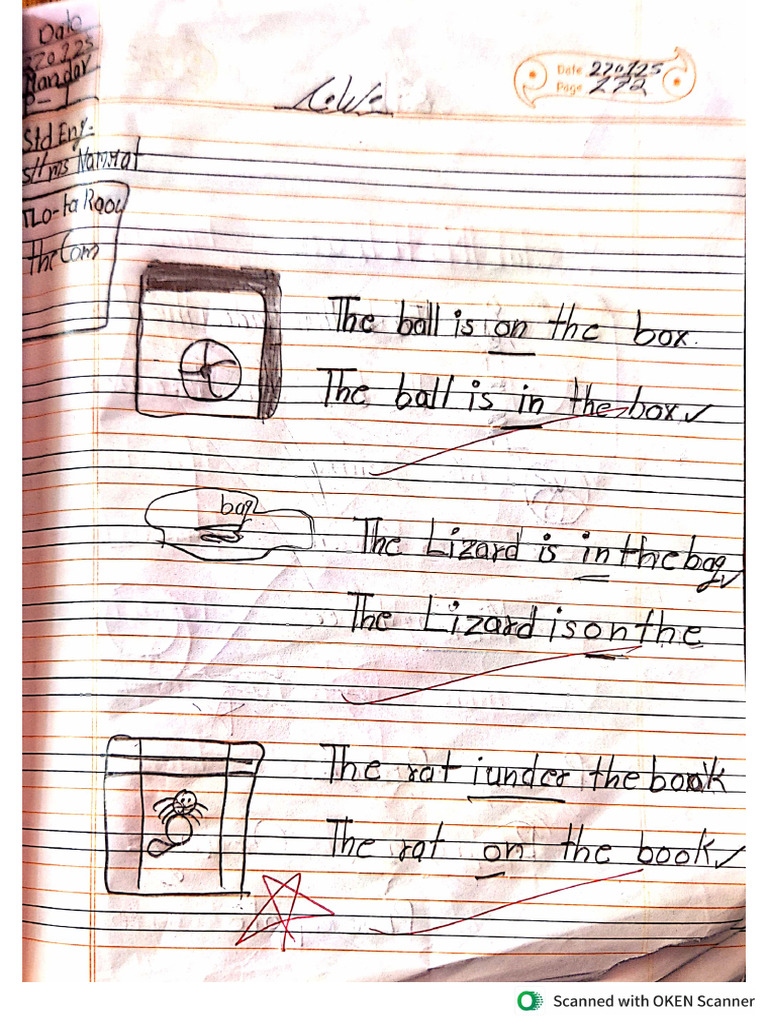 Date
220725
Mandar
P-1
Std Eng.
Sthms Namrat
TLO-ta Raou
The Com
C.W.
Date 220725
Page 272
The ball is on the box.
The ball is in the box ✓
bag
The Lizard is in the bag ✓
The Lizard is on the
The rat iunder the book
The rat on the book ✓
Scanned with OKEN Scanner